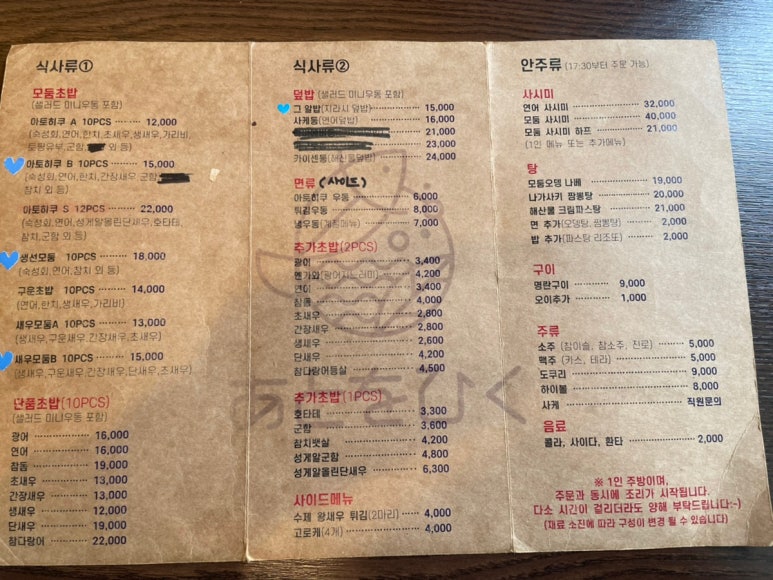 식사류①
모둠초밥
(샐러드 미니우동 포함)
아토히쿠 A 10PCS 12,000
(숙성회,연어,한치,초새우,생새우,가리비,
토핑유부,군함, 외 등)
아토히쿠 B 10PCS 15,000
(숙성회,연어,한치,간장새우,군함
참치 외 등)
아토히쿠 S 12PCS 22,000
(숙성회,연어,성게알올린단새우,호타테,
참치,군함 외 등)
생선모둠 10PCS 18,000
(숙성회,연어,참치 외 등)
구운초밥 10PCS 14,000
(연어,한치,생새우,가리비)
새우모둠A 10PCS 13,000
(생새우,구운새우,간장새우,초새우)
새우모둠B 10PCS 15,000
(생새우,구운새우,간장새우,단새우,초새우)
단품초밥(10PCS)
(샐러드 미니우동 포함)
광어 16,000
연어 16,000
참돔 19,000
초새우 13,000
간장새우 13,000
생새우 12,000
단새우 19,000
참다랑어 22,000
식사류②
덮밥 (샐러드 미니우동 포함)
그 알밥(지라시 덮밥) 15,000
사케동(연어덮밥) 16,000
21,000
23,000
카이센동(해산물덮밥) 24,000
면류 (사이드)
아토히쿠 우동 6,000
튀김우동 8,000
냉우동(계절메뉴) 7,000
추가초밥(2PCS)
광어 3,400
엔가와(광어지느러미) 4,200
연어 3,400
참돔 4,000
초새우 2,800
간장새우 2,800
생새우 2,600
단새우 4,200
참다랑어등살 4,500
추가초밥(1PCS)
호타테 3,300
군함 3,600
참치뱃살 4,200
성게알군함 4,800
성게알올린단새우 6,300
사이드메뉴
수제 왕새우 튀김(2마리) 4,000
고로케(4개) 4,000
あとをひく
안주류 (17:30부터 주문 가능)
사시미
연어 사시미 32,000
모둠 사시미 40,000
모둠 사시미 하프 21,000
(1인 메뉴 또는 추가메뉴)
탕
모둠오뎅 나베 19,000
나가사키 짬뽕탕 20,000
해산물 크림파스탕 21,000
면 추가(오뎅탕, 짬뽕탕) 2,000
밥 추가(파스탕 리조또) 2,000
구이
명란구이 9,000
오이추가 1,000
주류
소주 (참이슬, 참소주, 진로) 5,000
맥주 (카스, 테라) 5,000
도쿠리 9,000
하이볼 8,000
사케 직원문의
음료
콜라, 사이다, 환타 2,000
※ 1인 주방이며,
주문과 동시에 조리가 시작됩니다.
다소 시간이 걸리더라도 양해 부탁드립니다:-)
(재료 소진에 따라 구성이 변경 될 수 있습니다)